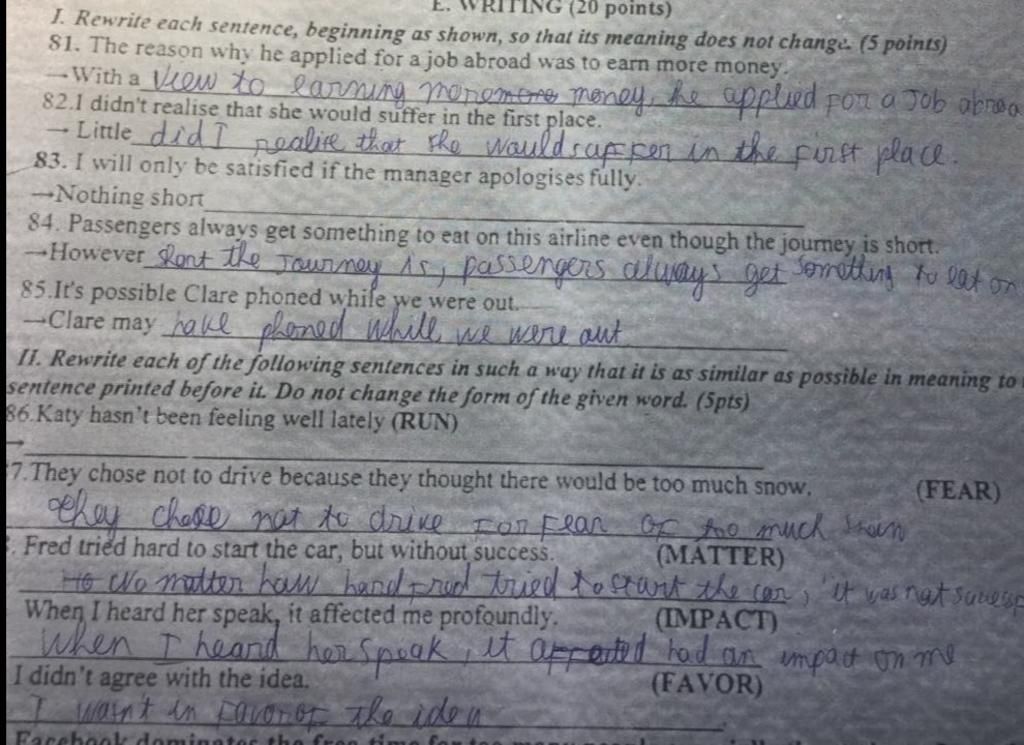 E. WRITING (20 points)
I. Rewrite each sentence, beginning as shown, so that its meaning does not change. (5 points)
81. The reason why he applied for a job abroad was to earn more money.
→With a view to earning more money, he applied for a job abroa
82.I didn't realise that she would suffer in the first place.
→ Little did I realise that she would suffer in the first place.
83. I will only be satisfied if the manager apologises fully.
→Nothing short
84. Passengers always get something to eat on this airline even though the journey is short.
→However short the journey is, passengers always get something to eat on
85.It's possible Clare phoned while we were out.
→Clare may have phoned while we were out
II. Rewrite each of the following sentences in such a way that it is as similar as possible in meaning to
sentence printed before it. Do not change the form of the given word. (5pts)
86.Katy hasn't been feeling well lately (RUN)
→
7.They chose not to drive because they thought there would be too much snow. (FEAR)
They chose not to drive for fear of too much snow
. Fred tried hard to start the car, but without success. (MATTER)
No matter how hard Fred tried to start the car, it was not
When I heard her speak, it affected me profoundly. (IMPACT)
When I heard her speak, it affected had an impact on me
I didn't agree with the idea. (FAVOR)
I wasn't in favor of the idea
Facebook dominates the free time for too many people